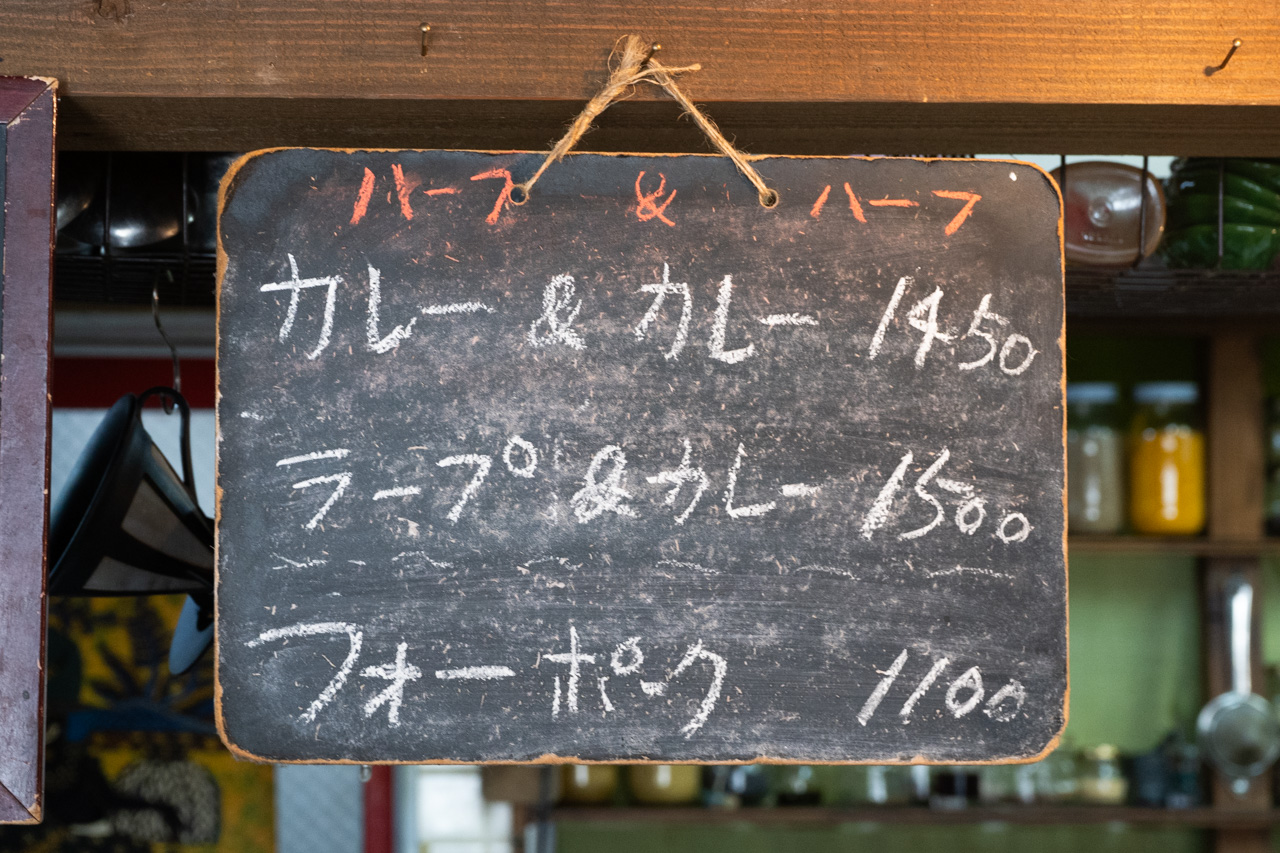 ハーフ & ハーフ
カレー & カレー 1450
ラープ & カレー 1500
フォーポーク 1100